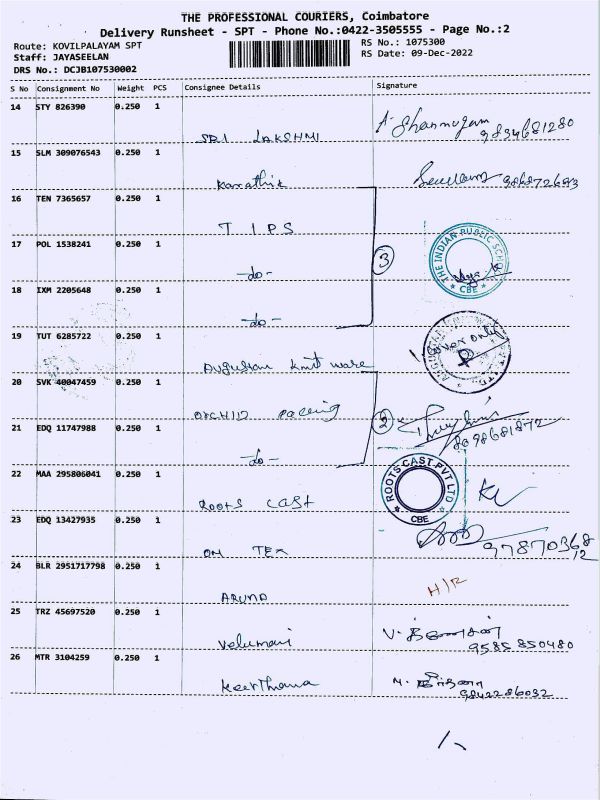 THE PROFESSIONAL COURIERS, Coimbatore
Delivery Runsheet - SPT - Phone No.:0422-3505555 - Page No.:2
Route: KOVILPALAYAM SPT
RS No.: 1075300
Staff: JAYASEELAN
RS Date: 09-Dec-2022
DRS No.: DCJB107530002
S No Consignment No Weight PCS Consignee Details Signature
14 STY 826390 0.250 1
SRI LAKSHMI A. Shanmugam 9834681280
15 SLM 309076543 0.250 1
Karathik
16 TEN 7365657 0.250 1
T I P S
17 POL 1538241 0.250 1
-do- 3 THE INDIAN PUBLIC CBE
18 IXM 2205648 0.250 1
-do-
19 TUT 6285722 0.250 1
Augustan knit ware Cover only
20 SVK 40047459 0.250 1
ORCHID
21 EDQ 11747988 0.250 1
-do- 2
22 MAA 295806041 0.250 1
Roots Cast ROOTS CAST PVT LTD CBE
23 EDQ 13427935 0.250 1
OM TEX
24 BLR 2951717798 0.250 1
ARUNA H/R
25 TRZ 45697520 0.250 1
Velumani 9585850480
26 MTR 3104259 0.250 1
Keerthana 9842286032